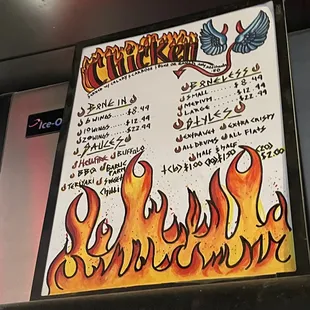 Chicken
BONE IN
6 WINGS......$8.49
10 WINGS.....$12.99
20 WINGS.....$22.99
SAUCES
HELLFIRE BUFFALO
BBQ GARLIC PARM
TERIYAKI SWEET CHILLI
BONELESS
SMALL......$8.49
MEDIUM......$12.99
LARGE
STYLES
EXTRA WET EXTRA CRISPY
ALL DRUMS ALL FLATS
HALF & HALF
(6) $1.00 (10) $1.50 (20) $2.00
Ice-O